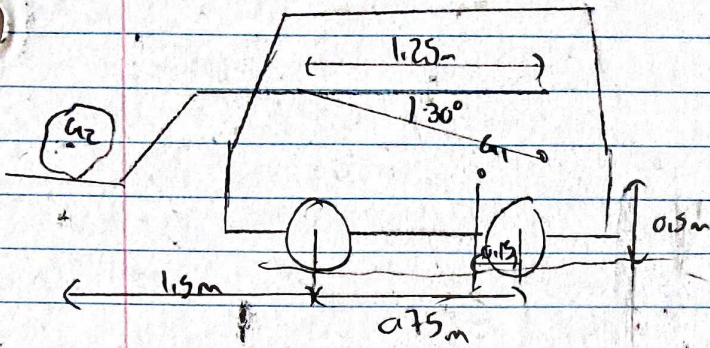 1.25m
30°
G2
G1
0.5m
0.15
1.5m
0.75m